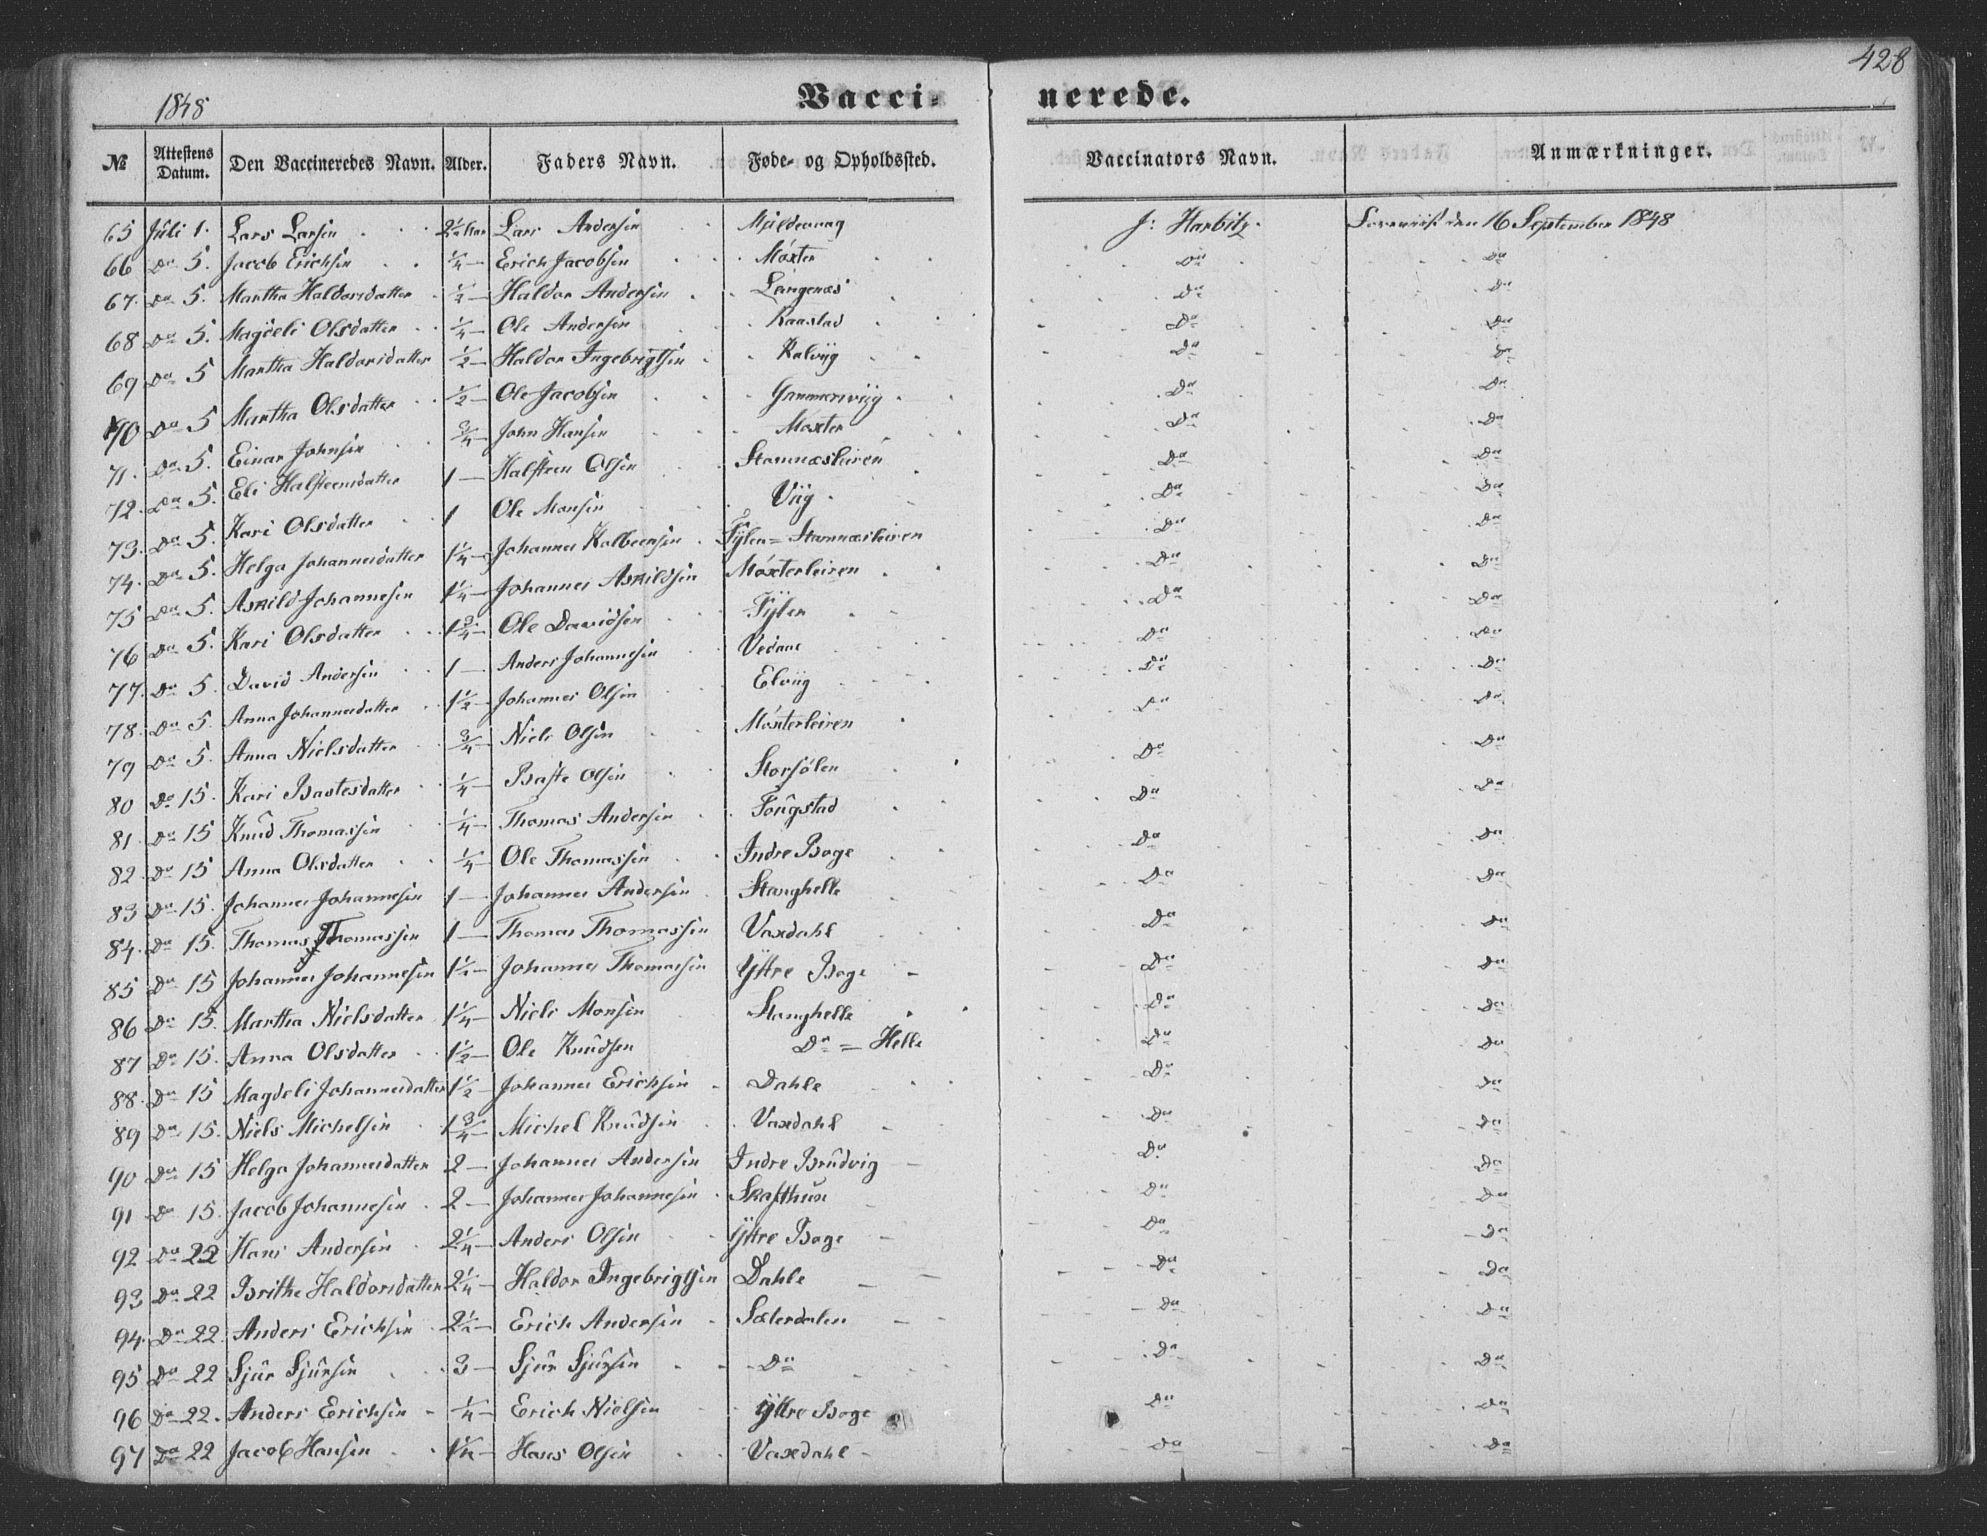 428
1848 Vaccinerede.
№ Attestens Datum. Den Vaccineredes Navn. Alder. Faders Navn. Føde- og Opholdssted. Vaccinators Navn. Anmærkninger.
65 Juli 1. Lars Larsen 2½ Aar Lars Andersen J: Harbitz. den 16 September 1848
66 Do 5. Jacob Erichsen ¼ — Erich Jacobsen Moxter Do Do
67. Do 5. Martha Haldorsdatter ½ — Haldor Andersen Langenæs Do Do
68 Do 5. Magdeli Olsdatter ¼ — Ole Andersen Raastad Do Do
69 Do 5 Martha Haldorsdatter ½ — Haldor Ingebrigtsen Kalviig Do Do
70 Do 5 Martha Olsdatter ½ — Ole Jacobsen Gammersviig Do Do
71. Do 5. Einar Johnsen ¾ — John Hansen Moxter Do Do
72. Do 5. Eli Halsteensdatter 1 — Halsteen Olsen Stamnæsleiren Do Do
73. Do 5. Kari Olsdatter 1 Ole Monsen Viig Do Do
74. Do 5. Helga Johannesdatter 1¼ — Johannes Kolbeensen Fylen = Stamnæsleiren Do Do
75 Do 5. Askild Johannesen 1¼ — Johannes Askildsen Moxterleiren Do Do
76 Do 5. Kari Olsdatter 1¾ — Ole Davidsen Fylen Do Do
77. Do 5. David Andersen 1 — Anders Johannesen Vedaae Do Do
78. Do 5. Anna Johannesdatter 1½ — Johannes Olsen Elviig Do Do
79 Do 5. Anna Nielsdatter ¾ — Niels Olsen Moxterleiren Do Do
80 Do 15. Kari Bastesdatter ¼ — Baste Olsen Do Do
81. Do 15 Knud Thomassen ¼ — Thomas Andersen Fougstad Do Do
82. Do 15 Anna Olsdatter ¼ — Ole Thomassen Indre Boge Do Do
83 Do 15. Johannes Johannesen 1 — Johannes Andersen Stanghelle Do Do
84. Do 15. Thomas Thomassen 1 — Thomas Thomassen Vaxdahl Do Do
85 Do 15 Johannes Johannesen 1½ — Johannes Thomassen Yttre Boge Do Do
86 Do 15. Martha Nielsdatter 1¼ — Niels Monsen Stanghelle Do Do
87 Do 15. Anna Olsdatter 1½ — Ole Knudsen Do = Helle Do Do
88. Do 15 Magdeli Johannesdatter 1½ — Johannes Erichsen Dahle Do Do
89 Do 15. Niels Michelsen 1¾ — Michel Knudsen Vaxdahl Do Do
90 Do 15 Helga Johannesdatter 2 — Johannes Andersen Indre Brudvig Do Do
91 Do 15. Jacob Johannesen 2 — Johannes Johannesen Skafthun Do Do
92 Do 22 Hans Andersen 2¼ — Anders Olsen Yttre Boge Do Do
93 Do 22 Brithe Haldorsdatter 2¼ — Haldor Ingebrigtsen Dahle Do Do
94. Do 22. Anders Erichsen 2½ — Erich Andersen Sæterdalen Do Do
95 Do 22 Sjur Sjursen 3 — Sjur Sjursen Do Do Do
96 Do 22. Anders Erichsen ¼ — Erich Nielsen Yttre Boge Do Do
97 Do 22 Jacob Hansen 1½ — Hans Olsen Vaxdahl Do Do